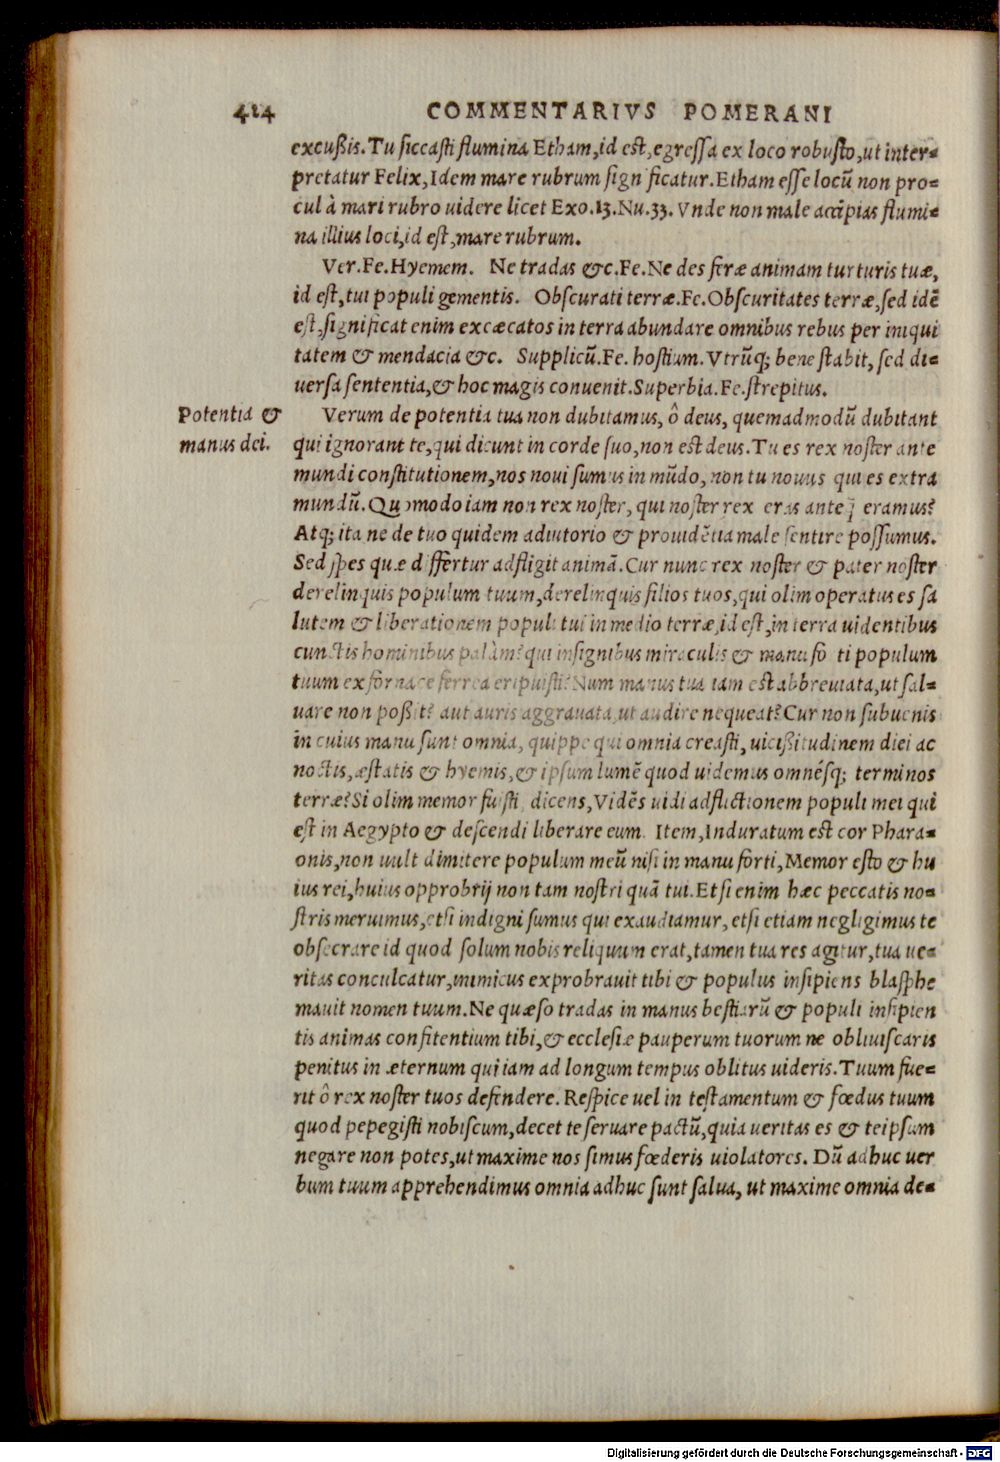 424 COMMENTARIVS POMERANI
excußis. Tu siccasti flumina Etham, id est, egressa ex loco robusto, ut inter-
pretatur Felix, Idem mare rubrum significatur. Etham esse locũ non pro-
cul à mari rubro uidere licet Exo. 13. Nu. 33. Vnde non male accipias flumi-
na illius loci, id est, mare rubrum.
Ver. Fe. Hyemem. Ne tradas &c. Fe. Ne des feræ animam turturis tuæ,
id est, tui populi gementis. Obscurati terræ. Fe. Obscuritates terræ, sed idẽ
est, significat enim excæcatos in terra abundare omnibus rebus per iniqui
tatem & mendacia &c. Supplicũ. Fe. hostium. Vtrũq; bene stabit, sed di-
uersa sententia, & hoc magis conuenit. Superbia. Fe. strepitus.
Potentia &
manus dei.
Verum de potentia tua non dubitamus, ô deus, quemadmodũ dubitant
qui ignorant te, qui dicunt in corde suo, non est deus. Tu es rex noster ante
mundi constitutionem, nos noui sumus in mũdo, non tu nouus qui es extra
mundũ. Quomodo iam non rex noster, qui noster rex eras ante q̃ eramus?
Atq; ita ne de tuo quidem adiutorio & prouidẽtia male sentire possumus.
Sed spes quæ differtur adfligit animã. Cur nunc rex noster & pater noster
derelinquis populum tuum, derelinquis filios tuos, qui olim operatus es sa
lutem & liberationem populi tui in medio terræ, id est, in terra uidentibus
cunctis hominibus palàm? qui insignibus miraculis & manu forti populum
tuum ex fornace ferrea eripuisti? Num manus tua iam est abbreuiata, ut sal-
uare non poßit? aut auris aggrauata, ut audire nequeat? Cur non subuenis
in cuius manu sunt omnia, quippe qui omnia creasti, uicißitudinem diei ac
noctis, æstatis & hyemis, & ipsum lumẽ quod uidemus omnésq; terminos
terræ? Si olim memor fuisti dicens, Vidẽs uidi adflictionem populi mei qui
est in Aegypto & descendi liberare eum. Item, Induratum est cor Phara-
onis, non uult dimitere populum meũ nisi in manu forti, Memor esto & hu
ius rei, huius opprobrij non tam nostri quã tui. Etsi enim hæc peccatis no-
stris meruimus, etsi indigni sumus qui exaudiamur, etsi etiam negligimus te
obsecrare id quod solum nobis reliquum erat, tamen tua res agitur, tua ue-
ritas conculcatur, inimicus exprobrauit tibi & populus insipiens blasphe
mauit nomen tuum. Ne quæso tradas in manus bestiarũ & populi insipien
tis animas confitentium tibi, & ecclesiæ pauperum tuorum ne obliuiscaris
penitus in æternum qui iam ad longum tempus oblitus uideris. Tuum fue-
rit ô rex noster tuos defendere. Respice uel in testamentum & fœdus tuum
quod pepegisti nobiscum, decet te seruare pactũ, quia ueritas es & teipsum
negare non potes, ut maxime nos simus fœderis uiolatores. Dũ adhuc uer
bum tuum apprehendimus omnia adhuc sunt salua, ut maxime omnia de-
Digitalisierung gefördert durch die Deutsche Forschungsgemeinschaft - DFG